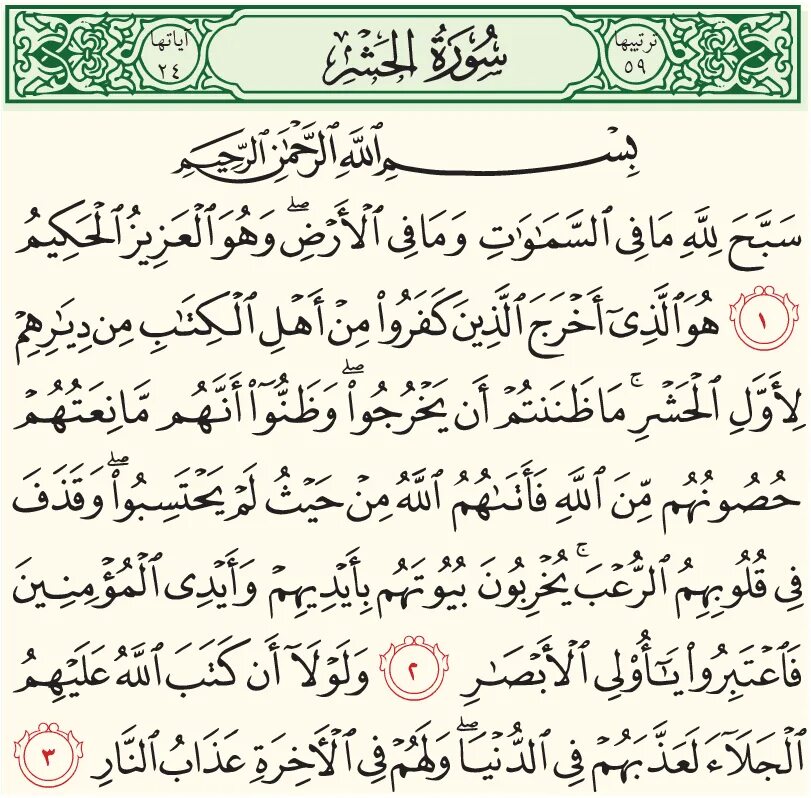 ترتيبها ٥٩ سُورَةُ الحَشْرِ آياتها ٢٤
بِسْمِ اللَّهِ الرَّحْمَٰنِ الرَّحِيمِ
سَبَّحَ لِلَّهِ مَا فِي ٱلسَّمَٰوَٰتِ وَمَا فِي ٱلْأَرْضِۖ وَهُوَ ٱلْعَزِيزُ ٱلْحَكِيمُ
١ هُوَ ٱلَّذِيٓ أَخْرَجَ ٱلَّذِينَ كَفَرُوا۟ مِنْ أَهْلِ ٱلْكِتَٰبِ مِن دِيَٰرِهِمْ
لِأَوَّلِ ٱلْحَشْرِۚ مَا ظَنَنتُمْ أَن يَخْرُجُوا۟ۖ وَظَنُّوٓا۟ أَنَّهُم مَّانِعَتُهُمْ
حُصُونُهُم مِّنَ ٱللَّهِ فَأَتَىٰهُمُ ٱللَّهُ مِنْ حَيْثُ لَمْ يَحْتَسِبُوا۟ۖ وَقَذَفَ
فِي قُلُوبِهِمُ ٱلرُّعْبَۚ يُخْرِبُونَ بُيُوتَهُم بِأَيْدِيهِمْ وَأَيْدِي ٱلْمُؤْمِنِينَ
فَٱعْتَبِرُوا۟ يَٰٓأُو۟لِي ٱلْأَبْصَٰرِ ٢ وَلَوْلَآ أَن كَتَبَ ٱللَّهُ عَلَيْهِمُ
ٱلْجَلَآءَ لَعَذَّبَهُمْ فِي ٱلدُّنْيَاۖ وَلَهُمْ فِي ٱلْأٓخِرَةِ عَذَابُ ٱلنَّارِ ٣